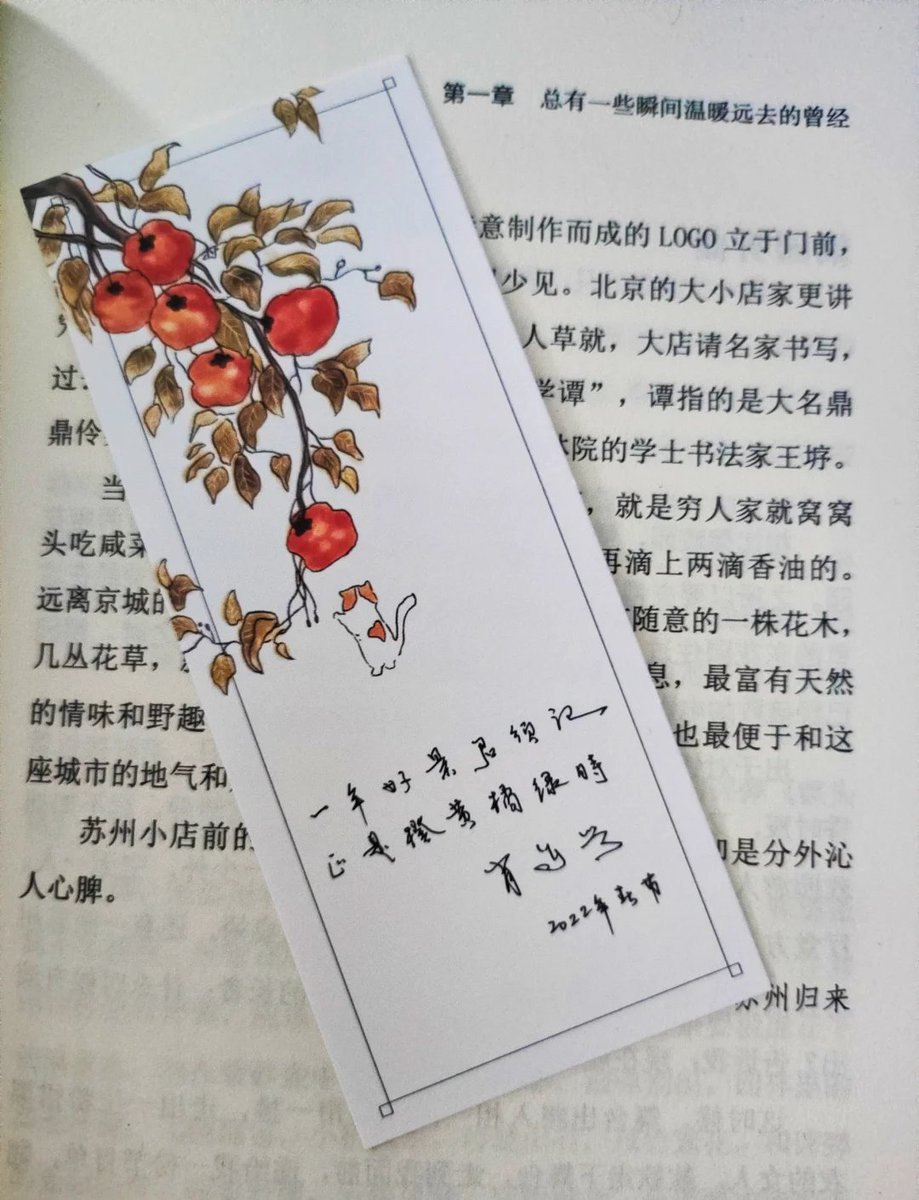 第一章 总有一些瞬间温暖远去的曾经
意制作而成的 LOGO 立于门前，
少见。北京的大小店家更讲
人草就，大店请名家书写，
过 学谭”，谭指的是大名鼎
鼎伶 林院的学士书法家王垿。
当 ，就是穷人家就窝窝
头吃咸菜 再滴上两滴香油的。
远离京城的 随意的一株花木，
几丛花草， 息，最富有天然
的情味和野趣 也最便于和这
座城市的地气和
苏州小店前的 却是分外沁
人心脾。
苏州归来
一年好景君须记
正是橙黄橘绿時
肖复兴
2022年春节